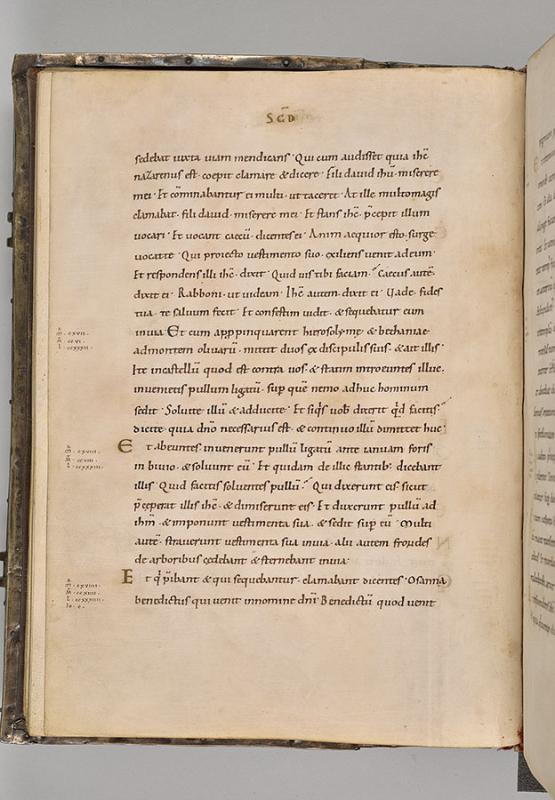 SCD
sedebat iuxta uiam mendicans · Qui cum audisset quia ihc̄
nazarenus est · coepit clamare & dicere · Fili dauid ihū · miserere
mei · Et cōminabantur ei multi · ut taceret · At ille multo magis
clamabat · fili dauid · miserere mei · Et stans ihc̄ · p̄cepit illum
uocari · Et uocant caecū · dicentes ei · Animaequior esto · surge
uocat te · Qui proiecto uestimento suo · exiliens uenit ad eum ·
Et respondens illi ihc̄ · dixit · Quid uis tibi faciam · Caecus autē ·
dixit ei · Rabboni · ut uideam · Ihc̄ autem · dixit ei · Uade · fides
tua · te saluum fecit · Et confestim uidit · & sequebatur eum
in uia · Et cum appropinquarent hierosolymę · & bethaniae ·
ad montem oliuarū · mittit duos ex discipulis suis · & ait illis ·
Ite in castellū quod est contra uos · & statim introeuntes illuc ·
inuenietis pullum ligatū · sup quē nemo adhuc hominum
sedit · Soluite illū & adducite · Et siq̄s uob̄ dixerit qd̄ facitis ·
dicite · quia dn̄o necessarius est · & continuo illū dimittet huc ·
Et abeuntes inuenerunt pullū ligatū ante ianuam foris
in biuio · & soluunt eū · Et quidam de illic stantib; dicebant
illis · Quid facitis soluentes pullū · Qui dixerunt eis sicut
p̄ceperat illis ihc̄ · & dimiserunt eis · Et duxerunt pullū ad
ihm̄ · & imponunt uestimenta sua · & sedit sup eū · Multi
autē · strauerunt uestimenta sua in uia · alii autem frondes
de arboribus cędebant & sternebant in uia ·
Et q̄ p̄ibant & qui sequebantur · clamabant dicentes · Osanna
benedictus qui uenit in nomine dn̄i · Benedictū quod uenit